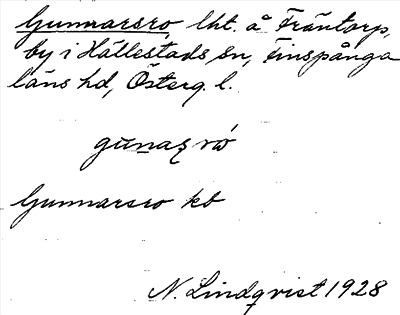 Gunnarsro, lht. å Fräntorp,
by i Hällestads sn, Finspånga
läns hd, Österg. l.
gunaʂ rὼ
Gunnarsro kb
N. Lindqvist 1928